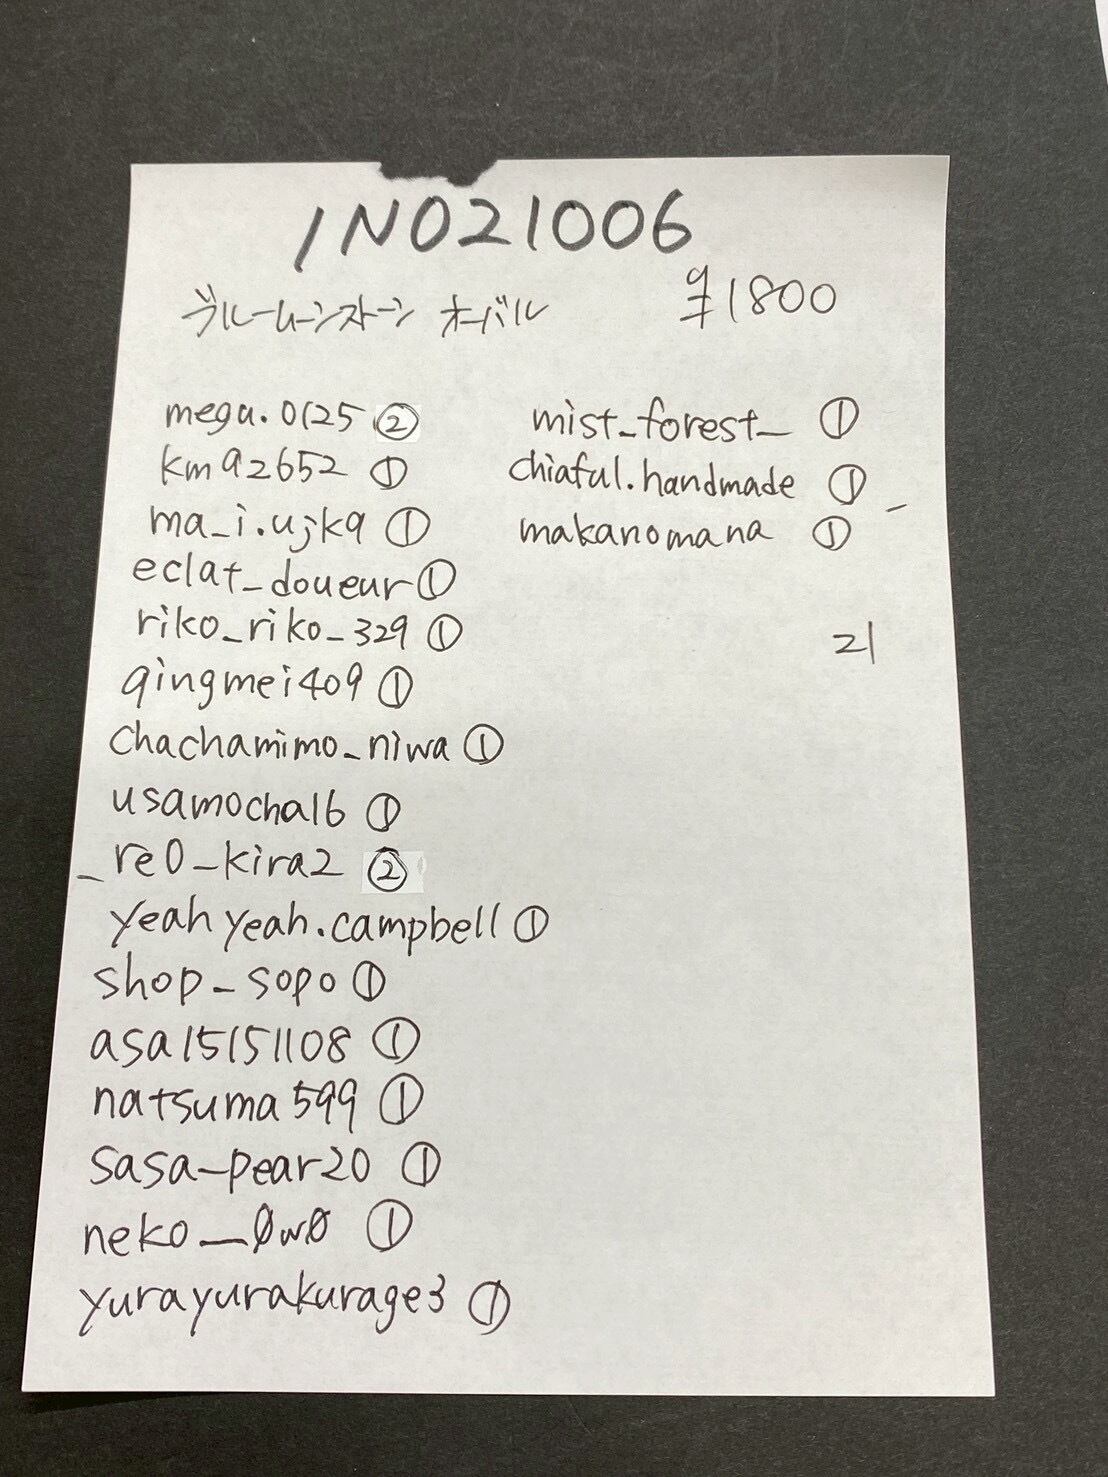 IN021006
ブルームーンストーン オーバル ¥1800
mega.0125②
km92652 ①
ma_i.ujk9 ①
eclat_doueur①
riko_riko_329 ①
qingmei409 ①
chachamimo_niwa ①
usamocha16 ①
_re0_kira2 ②
yeahyeah.campbell ①
shop_sopo ①
asa15151108 ①
natsuma599 ①
sasa_pear20 ①
neko__0w0 ①
yurayurakurage3 ①
mist_forest_ ①
chiaful.handmade ①
makanomana ①
21